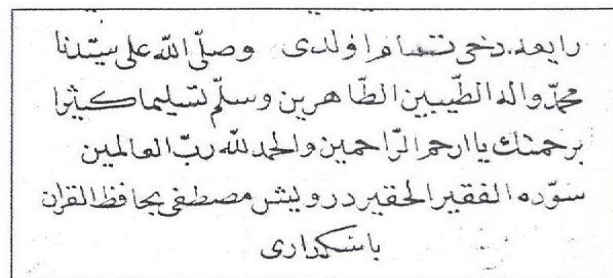 رابعه دخى تمام اولدى وصلّى الله على سيّدنا
محمّد واله الطّيبين الطّاهرين وسلّم تسليما كثيرا
برحمتك يا ارحم الرّاحمين والحمد لله ربّ العالمين
سوّده الفقير الحقير درويش مصطفى بحافظ القران
باشكرارى